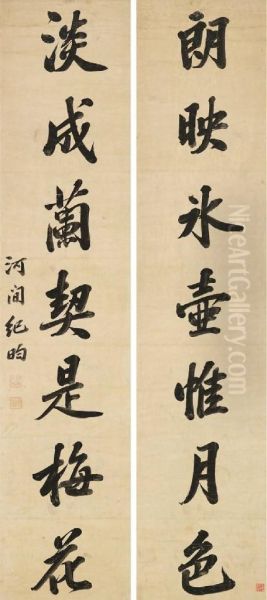 朗映冰壺惟月色
淡成蘭契是梅花
河間紀昀
NiceArtGallery.com